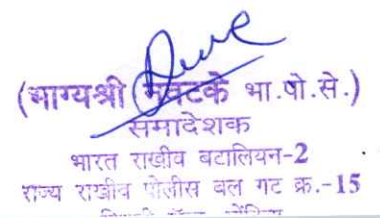 (भाग्यश्री नवटके भा.पो.से.)
समादेशक
भारत राखीव बटालियन-2
राज्य राखीव पोलीस बल गट क्र.-15